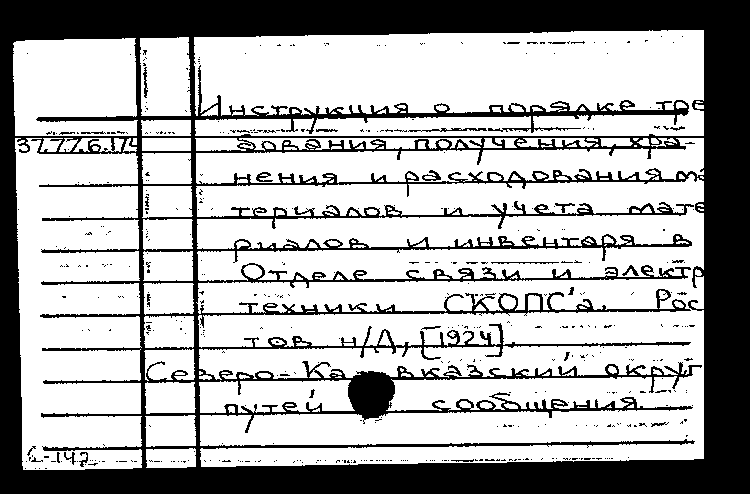 Инструкция о порядке тре
37.77.6.174 бования, получения, хра-
нения и расходования ма
териалов и учета мате
риалов и инвентаря в
Отделе связи и электр
техники СКОПС'а. Рос
тов н/Д, [1924].
Северо-Кавказский округ
путей сообщения.